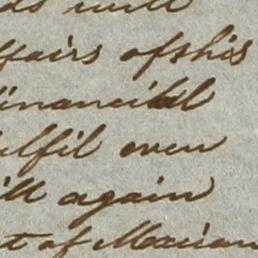 ds will
ffairs of this
financial
ulfil even
ill again
t of Mexican